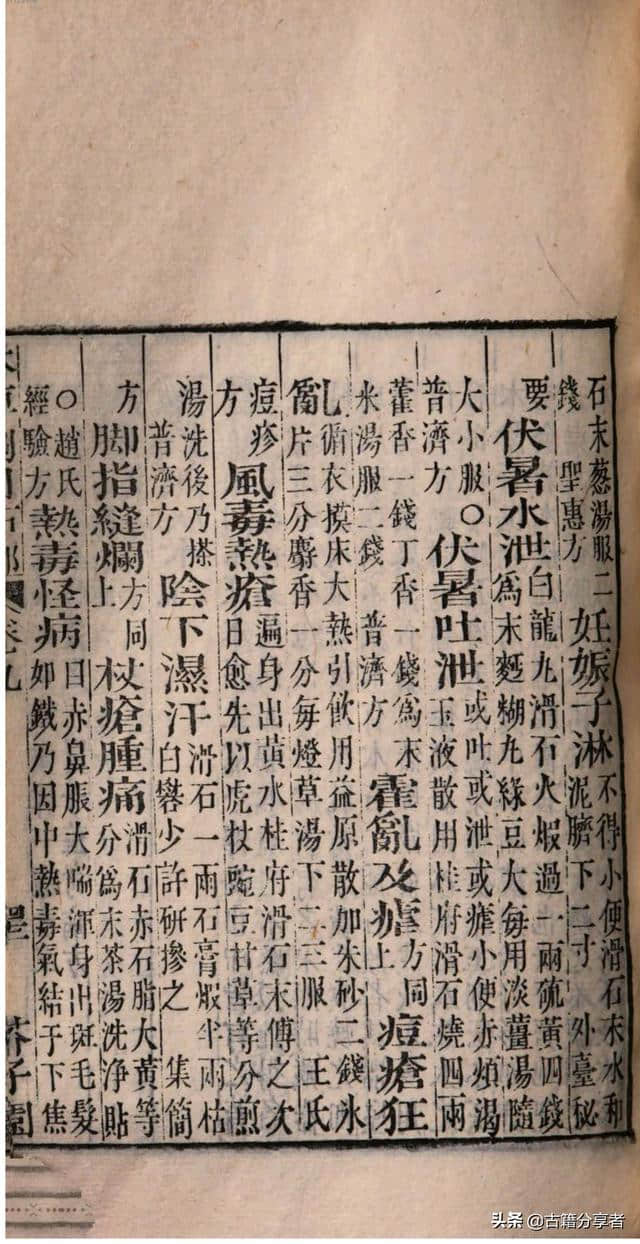 石末葱湯服二錢 聖惠方 妊娠子淋 不得小便滑石末水和泥臍下二寸 外臺秘
要 伏暑水泄 白龍丸滑石火煅過一兩硫黃四錢爲末麪糊丸綠豆大每用淡薑湯隨
大小服○普濟方 伏暑吐泄 或吐或泄或瘧小便赤煩渴玉液散用桂府滑石燒四兩
藿香一錢丁香一錢爲末米湯服二錢 普濟方 霍亂及瘧 方同上 痘瘡狂
亂 循衣摸床大熱引飲用益原散加朱砂二錢氷片三分麝香一分每燈草湯下二三服 王氏
痘疹方 風毒熱瘡 遍身出黃水桂府滑石末傅之次日愈先以虎杖豌豆甘草等分煎
湯洗後乃搽 普濟方 陰下濕汗 滑石一兩石膏煅半兩枯白礬少許研摻之 集簡
方 脚指縫爛 方同上 杖瘡腫痛 滑石赤石脂大黃等分爲末茶湯洗淨貼
○趙氏經驗方 熱毒怪病 目赤鼻脹大喘渾身出斑毛髮如鐵乃因中熱毒氣結于下焦
卷九
芥子園
头条 @古籍分享者